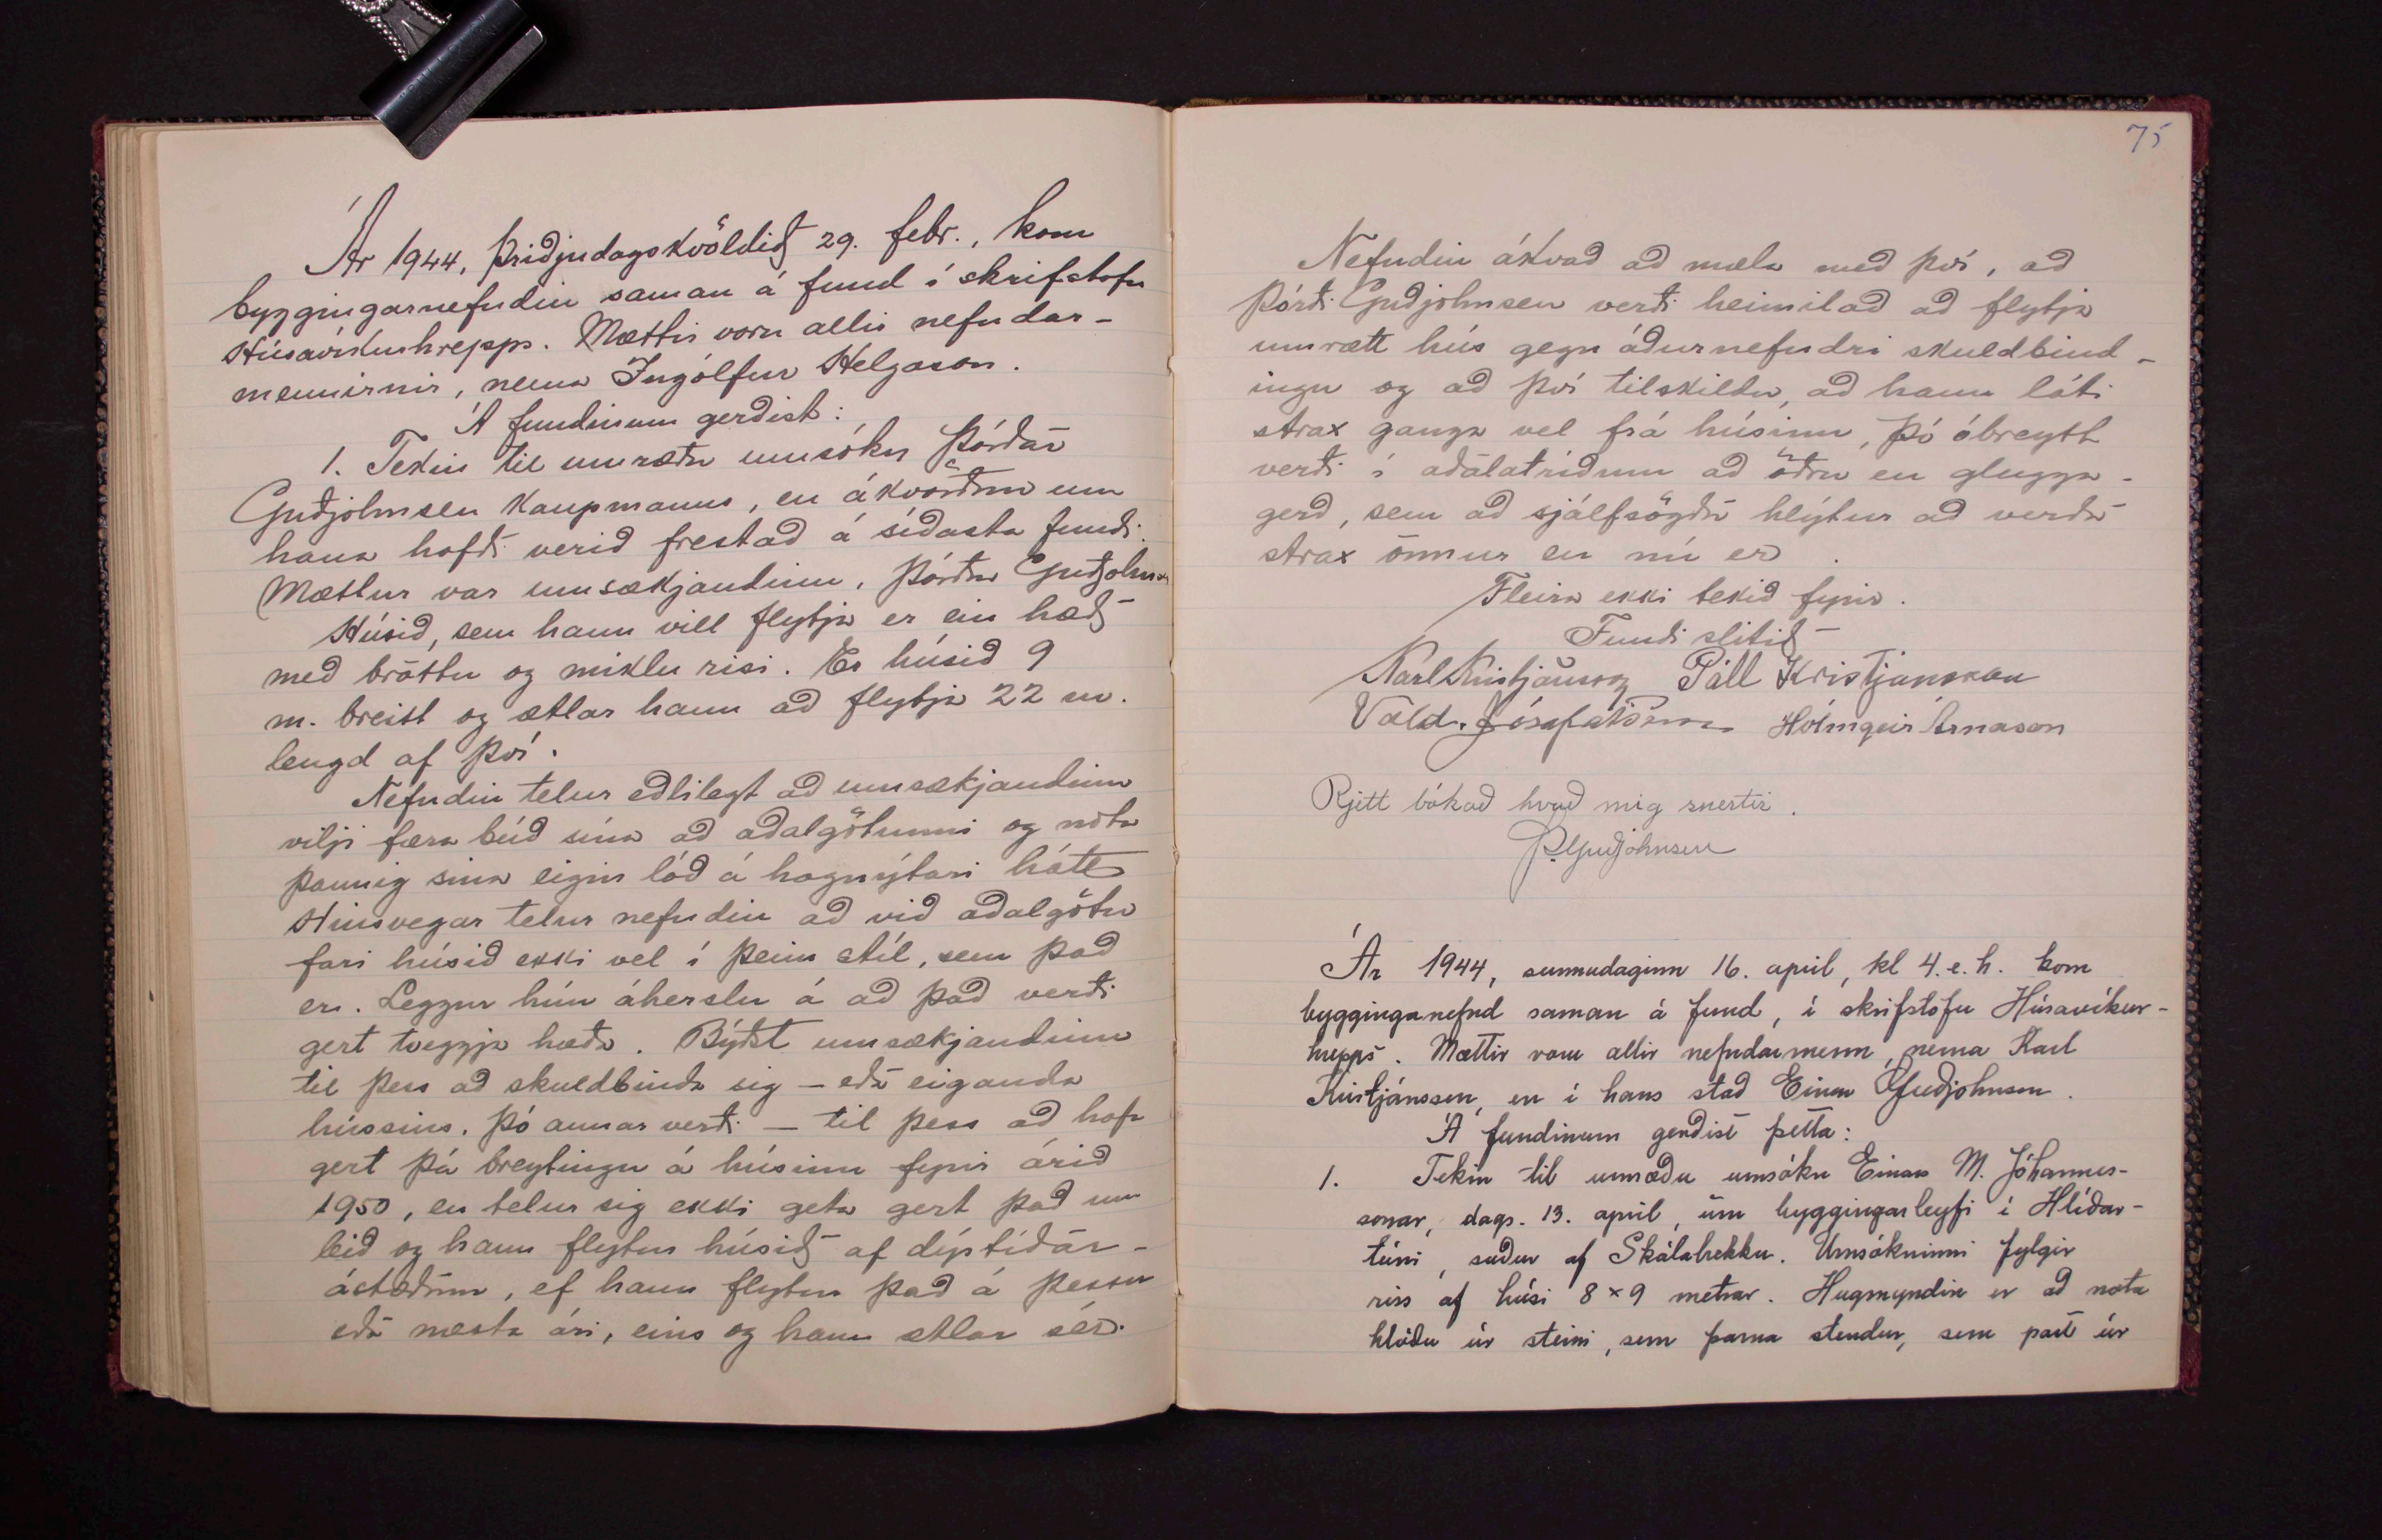 Ár 1944, þriðjudagskvöldið 29. febr., kom
byggingarnefndin saman á fund í skrifstofu
Húsavíkurhrepps. Mættir voru allir nefndar-
mennirnir, nema Ingólfur Helgason.
Á fundinum gerðist:
1. Tekin til umræðu umsókn Þórðar
Guðjohnsen kaupmanns, en ákvörðun um
hana hafði verið frestað á síðasta fundi.
Mættur var umsækjandinn, Þórður Guðjohnsen
Húsið, sem hann vill flytja er ein hæð
með bröttu og miklu risi. Er húsið 9
m. breitt og ætlar hann að flytja 22 m.
lengd af því.
Nefndin telur eðlilegt að umsækjandinn
vilji færa búð sína að aðalgötunni og nota
þannig sína eigin lóð á hagnýtari hátt
Hinsvegar telur nefndin að við aðalgötu
fari húsið ekki vel í þeim stíl, sem það
er. Leggur hún áherslu á að það verði
gert tveggja hæða. Býðst umsækjandinn
til þess að skuldbinda sig – eða eiganda
hússins, þó annar verði – til þess að hafa
gert þá breytingu á húsinu fyrir árið
1950, en telur sig ekki geta gert það um
leið og hann flytur húsið af dýrtíðar-
ástæðum, ef hann flytur það á þessu
eða næsta ári, eins og hann ætlar sér.
75
Nefndin ákvað að mæla með því, að
Þórði Guðjohnsen verði heimilað að flytja
umrætt hús gegn áðurnefndri skuldbind-
ingu og að því tilskildu, að hann láti
strax ganga vel frá húsinu, þó óbreytt
verði í aðalatriðum að öðru en glugga-
gerð, sem að sjálfsögðu hlýtur að verða
strax önnur en nú er.
Fleira ekki tekið fyrir.
Fundi slitið
Karl Kristjánsson Páll Kristjánsson
Vald. Jósafatsson Hólmgeir Árnason
Rjett bókað hvað mig snertir.
Þ. Guðjohnsen
Ár 1944, sunnudaginn 16. apríl, kl 4. e. h. kom
bygginganefnd saman á fund, í skrifstofu Húsavíkur-
hrepps. Mættir voru allir nefndarmenn, nema Karl
Kristjánsson, en í hans stað Einar Guðjohnsen.
Á fundinum gerðist þetta:
1. Tekin til umræðu umsókn Einars M. Jóhannes-
sonar, dags. 13. apríl, um byggingarleyfi í Hlíðar-
túni, suður af Skálabrekku. Umsókninni fylgir
riss af húsi 8 x 9 metrar. Hugmyndin er að nota
hlöðu úr steini, sem þarna stendur, sem part úr